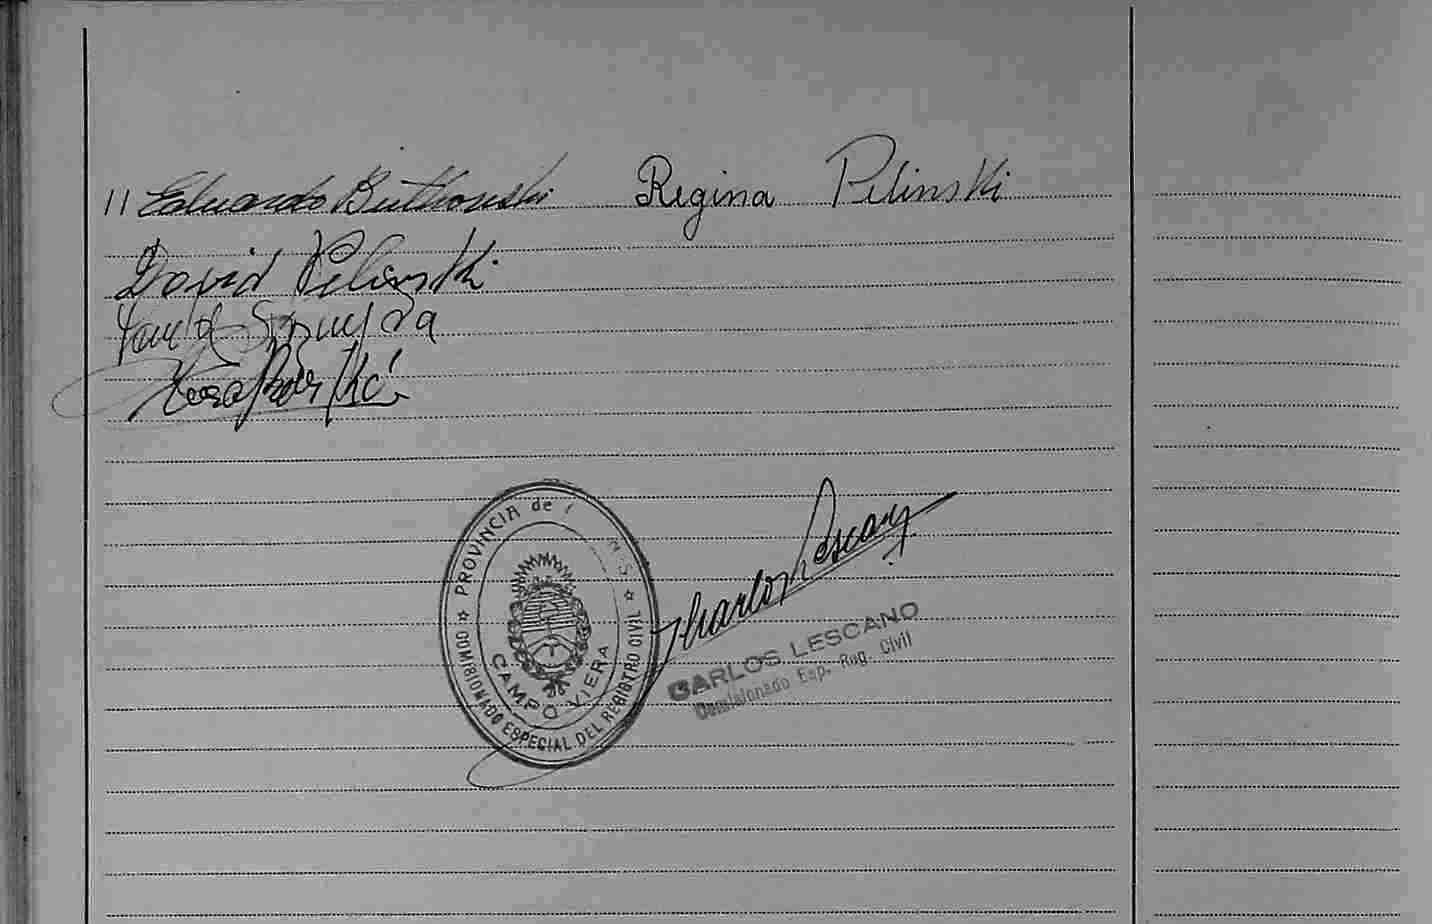 // Eduardo Butkowski Regina Pilinski
David Pilinski
PROVINCIA de
CAMPO VIERA
COMISIONADO ESPECIAL DEL REGISTRO CIVIL
Charlos Lescano
CARLOS LESCANO
Comisionado Esp. Reg. Civil